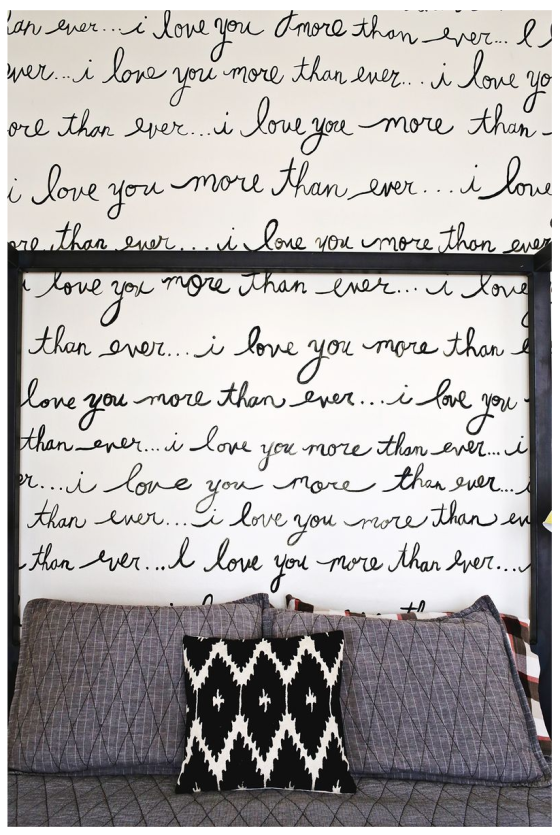 than ever...i love you more than ever... I l
ever...i love you more than ever...i love yo
ore than ever...i love you more than
i love you more than ever....i love
ore than ever....i love you more than ever
i love you more than ever...i love
than ever...i love you more than e
love you more than ever...i love you
than ever...i love you more than ever...i
er...i love you more than ever...i
than ever....i love you more than ev
than ever...I love you more than ever...
i th